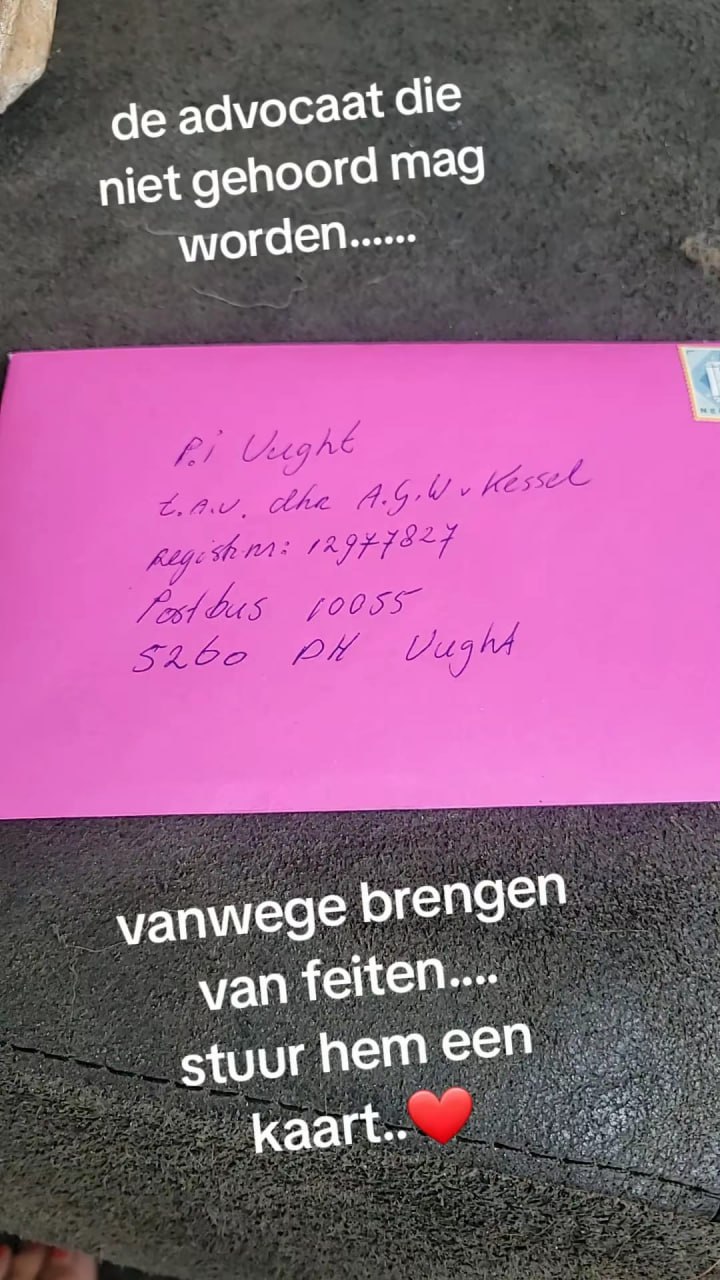 de advocaat die
niet gehoord mag
worden......
P.i Vught
t.a.v. dhr A.G.W. v Kessel
Registr nr: 12977827
Postbus 10055
5260 DH Vught
vanwege brengen
van feiten....
stuur hem een
kaart..❤️